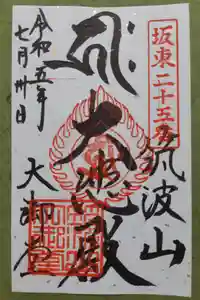 坂東二十五番
筑波山
大悲殿
大御堂
令和五年
七月卅日